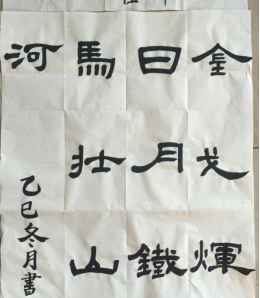 金戈煇
日月鐵
馬壮山
河
乙巳冬月書